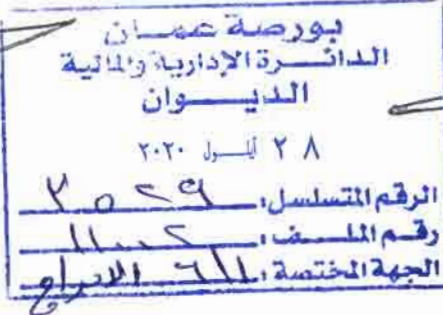 بورصة عمان
الدائرة الإدارية والمالية
الديوان
٢٨ ايلول ٢٠٢٠
الرقم المتسلسل: ٣٥٢٩
رقم الملف:
الجهة المختصة: الادراج